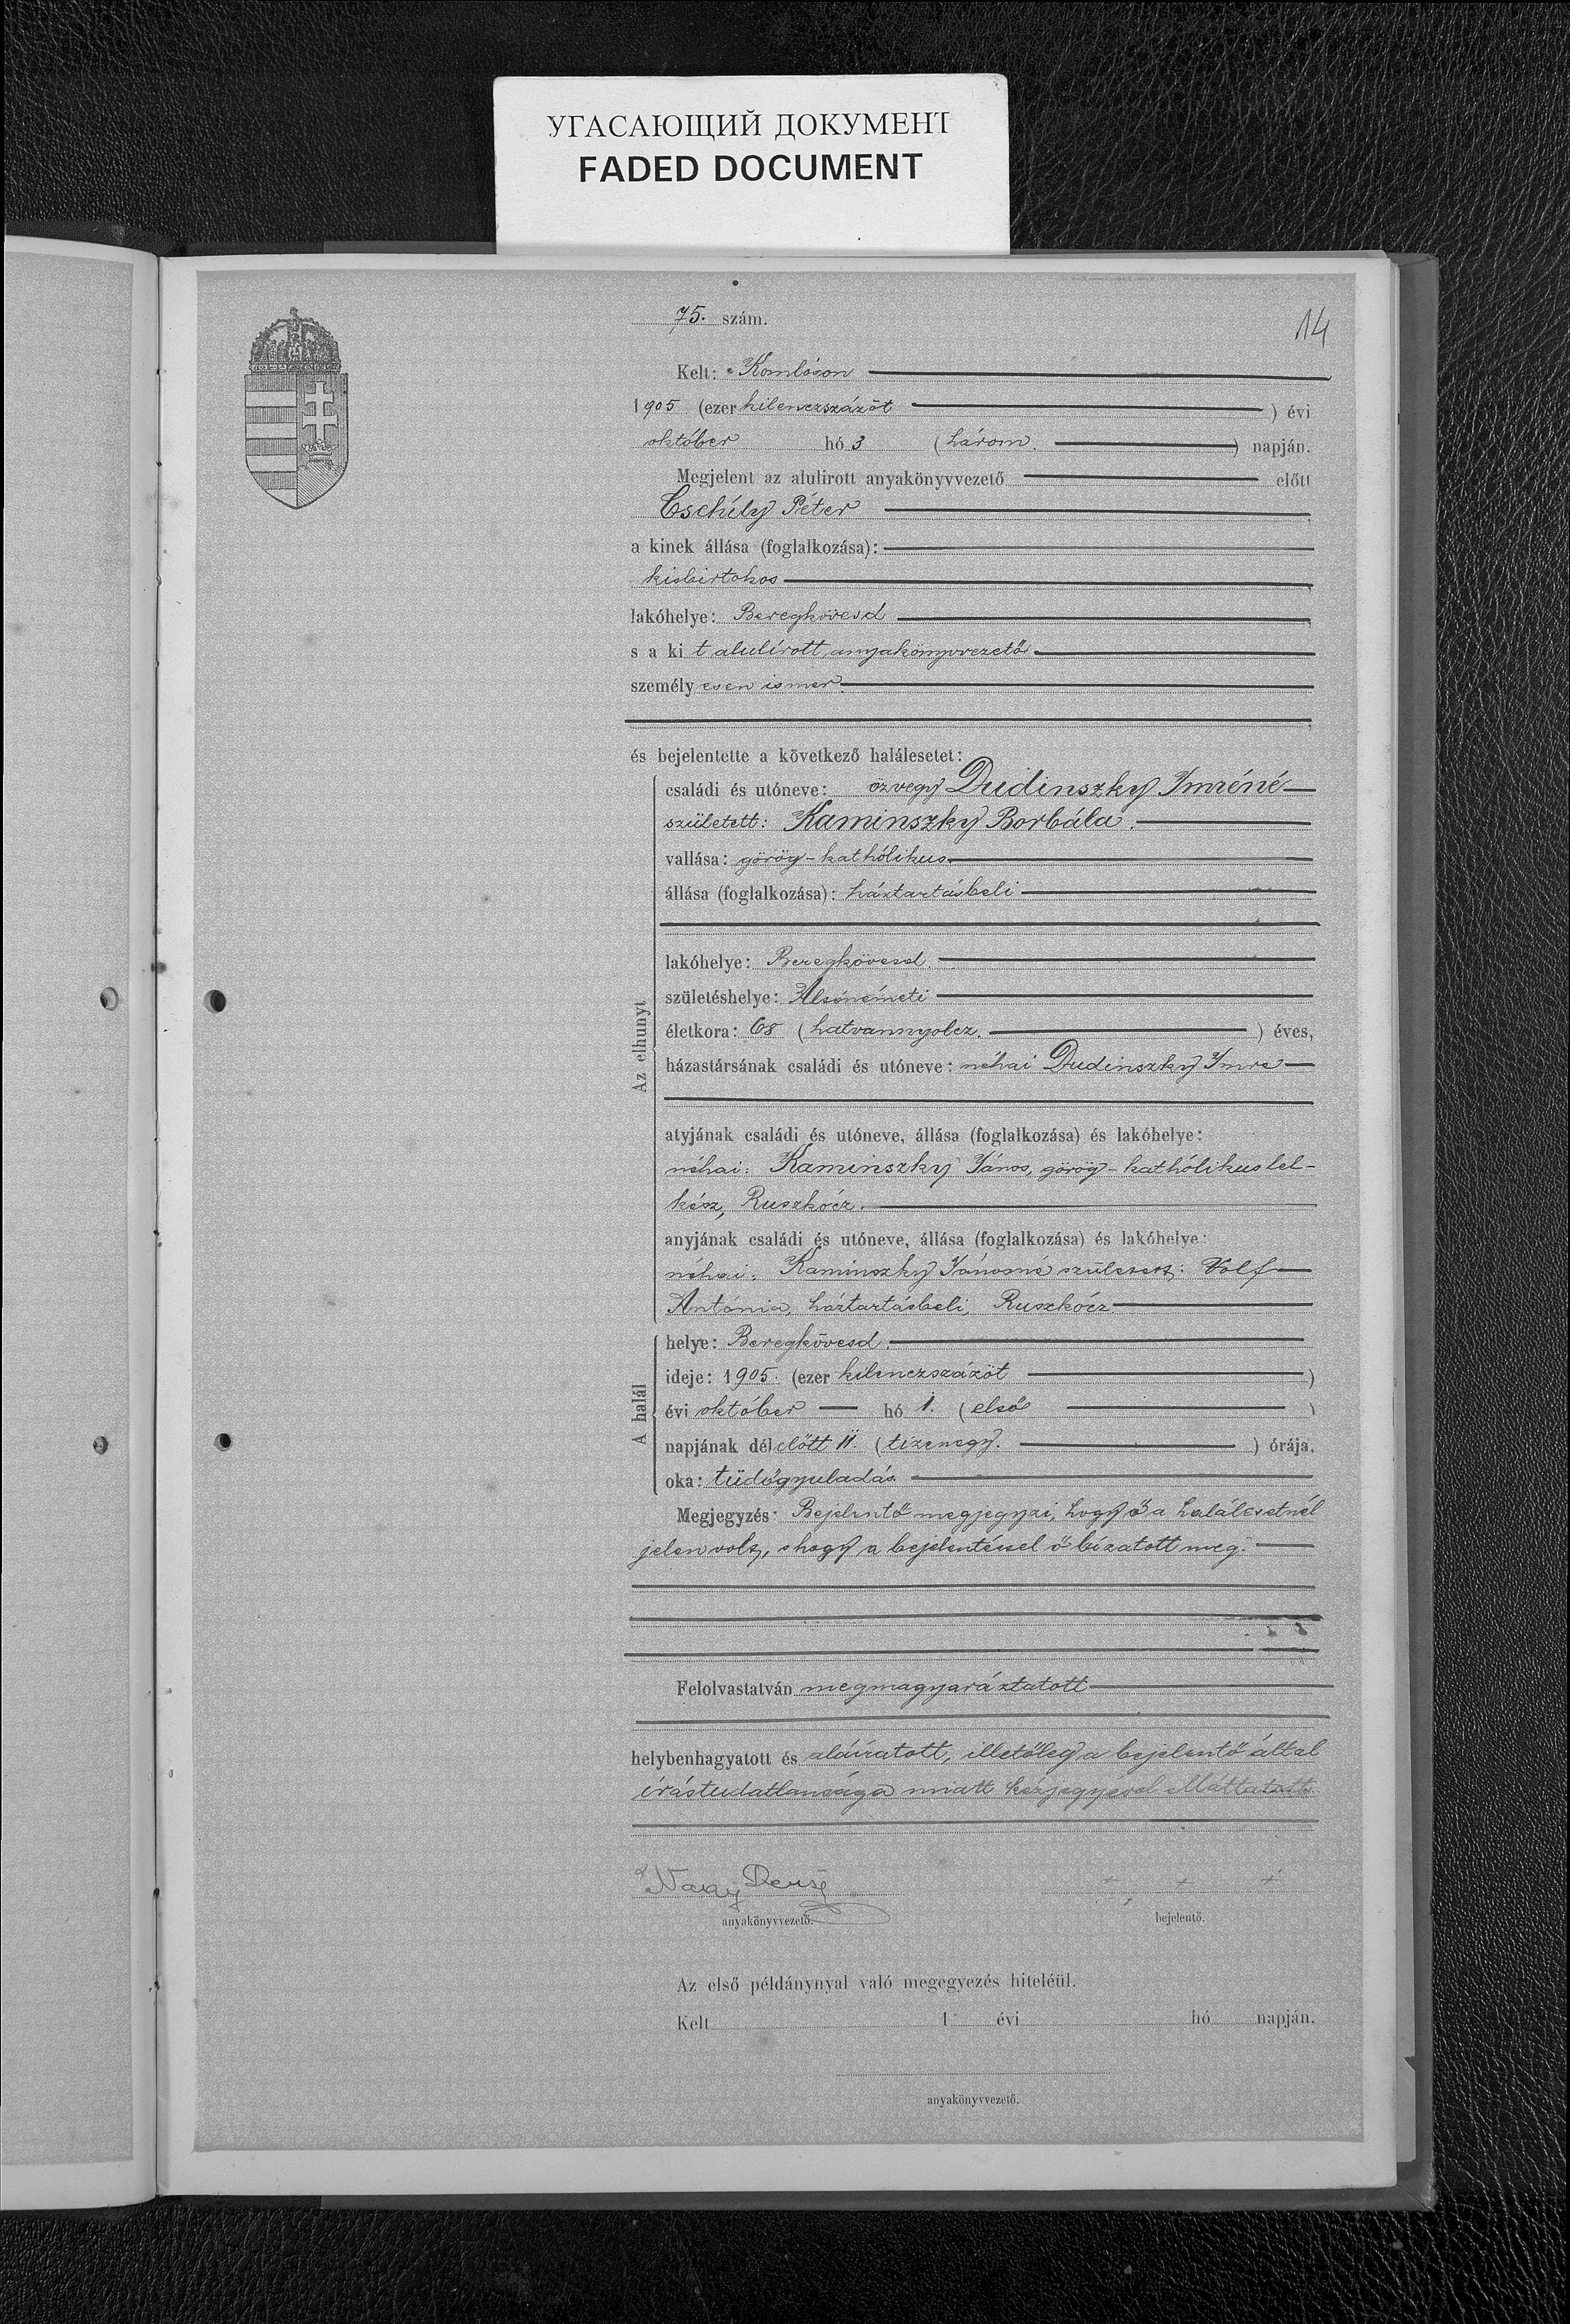 УГАСАЮЩИЙ ДОКУМЕНТ
FADED DOCUMENT
75. szám.
14
Kelt: Komlóson
1905 (ezer kilenczszázöt ) évi
október hó 3 (három. ) napján.
Megjelent az alulirott anyakönyvvezető előtt
Csehily Péter
a kinek állása (foglalkozása):
kisbirtokos
lakóhelye: Beregkövesd
s a kit alulírott anyakönyvvezető
személyesen ismer.
és bejelentette a következő halálesetet:
családi és utóneve: özvegy Dudinszky Imréné
született: Kaminszky Borbála.
vallása: görög-kathólikus
állása (foglalkozása): háztartásbeli
lakóhelye: Beregkövesd.
születéshelye: Alsónémeti
életkora: 68 (hatvannyolcz. ) éves,
Az elhunyt
házastársának családi és utóneve: néhai Dudinszky Imre
atyjának családi és utóneve, állása (foglalkozása) és lakóhelye:
néhai: Kaminszky János, görög-kathólikus lel-
kész, Ruszkócz.
anyjának családi és utóneve, állása (foglalkozása) és lakóhelye:
néhai: Kaminszky Jánosné született: Volf
Antónia, háztartásbeli, Ruszkócz.
helye: Beregkövesd.
ideje: 1905. (ezer kilenczszázöt )
A halál
évi október hó 1. (első )
napjának délelőtt 11. (tizenegy. ) órája,
oka: tüdőgyuladás.
Megjegyzés: Bejelentő megjegyzi, hogy ő a halálesetnél
jelen volt, s hogy a bejelentéssel ő bízatott meg.
Felolvastatván megmagyaráztatott
helybenhagyatott és aláíratott, illetőleg a bejelentő által
írástudatlansága miatt kézjegyével elláttatott
Nagy Dezső
+ + +
anyakönyvvezető.
bejelentő.
Az első példánynyal való megegyezés hiteléül.
Kelt 1 évi hó napján.
anyakönyvvezető.